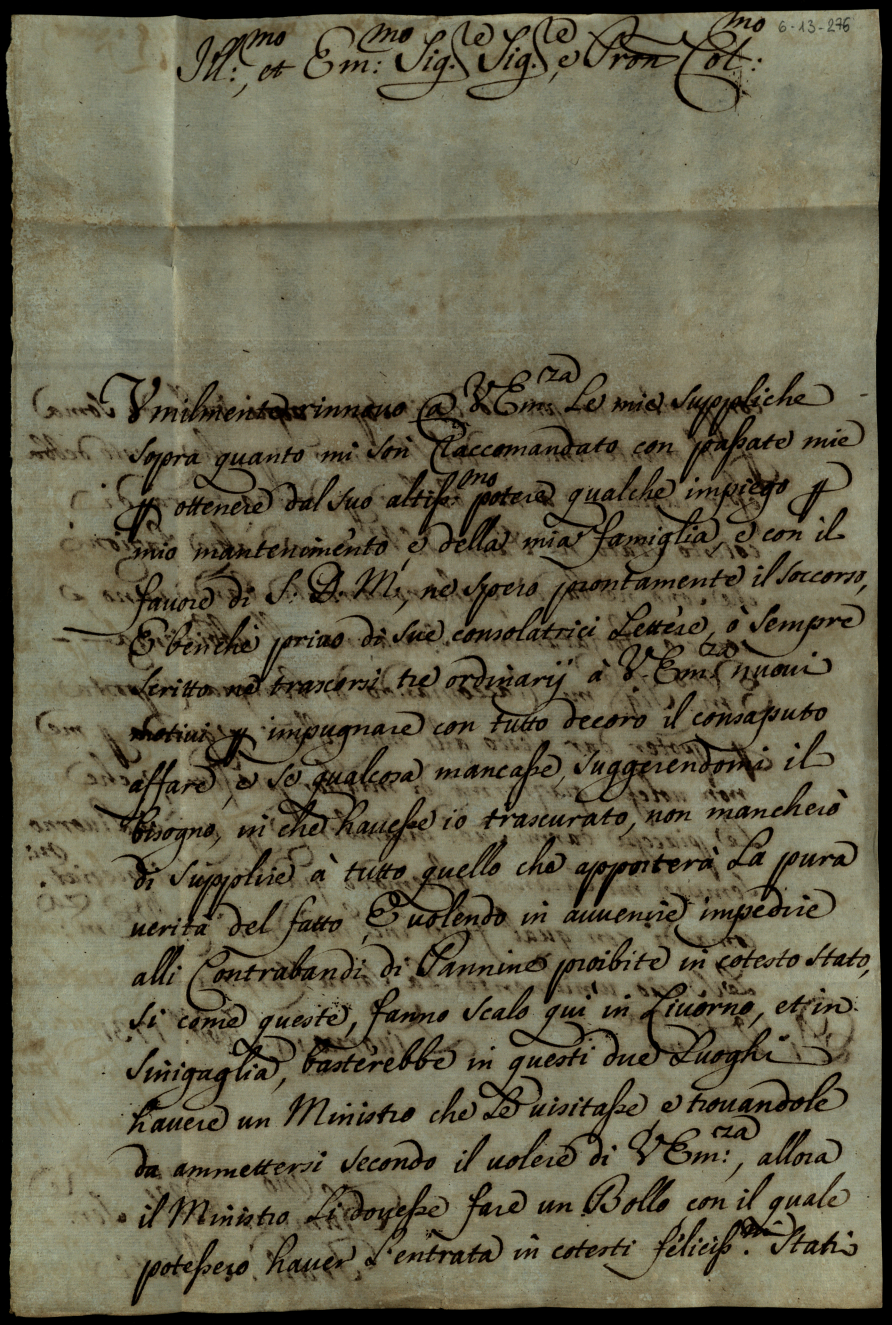 6-13-276
Ill:mo, et Em:mo Sig.re Sig.re, e Pron Col:mo
Vmilmente rinnouo a VEm:za Le mie suppliche
sopra quanto mi son Raccomandato con passate mie
p ottenere dal suo altiss.mo potere qualche impiego p
mio mantenimento, e della mia famiglia, e con il
fauore di S. D. M., ne spero prontamente il soccorso,
E benche priuo di sue consolatrici Lettere, ò sempre
scritto ne trascorsi tre ordinarij à V.Em:za nuoui
motiui p impugnare con tutto decoro il consaputo
affare, e se qualcosa mancasse, suggerendomi il
bisogno, in che hauesse io trascurato, non mancherò
di supplire à tutto quello che apporterà La pura
uerità del fatto, E uolendo in auuenire impedire
alli Contrabandi di Pannine proibite in cotesto stato,
si come queste, fanno scalo qui in Liuorno, et in
Sinigaglia, basterebbe in questi due Luoghi
hauere un Ministro che Le uisitasse e trouandole
da ammettersi secondo il uolere di VEm:za, allora
il Ministro Li douesse fare un Bollo con il quale
potessero hauer L'entrata in cotesti feliciss.mi Stati